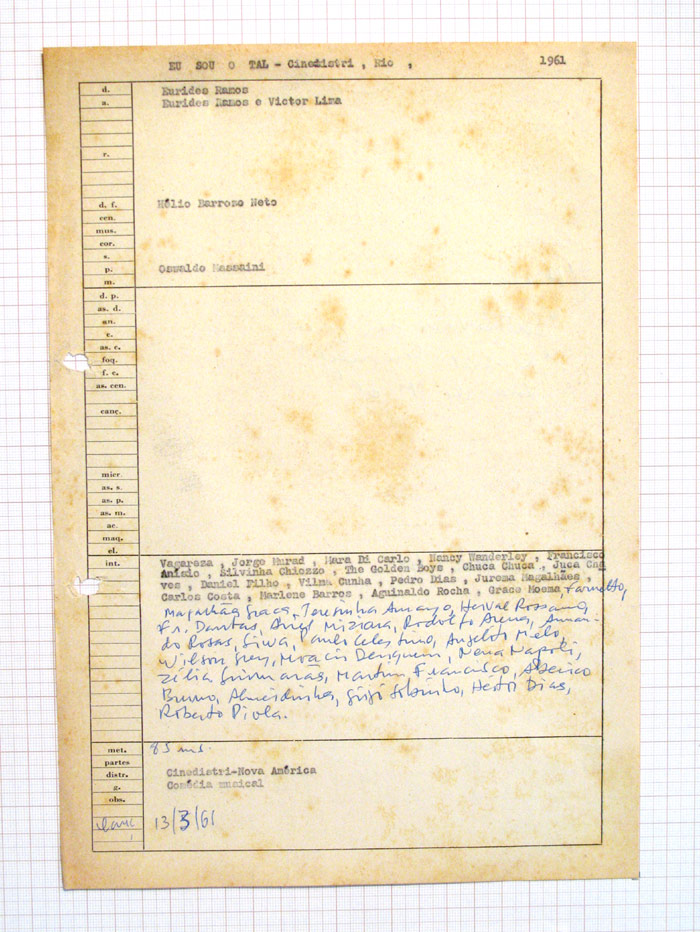 EU SOU O TAL - Cinedistri , Rio , 1961
d. Eurides Ramos
a. Eurides Ramos e Victor Lima
r.
d. f. Hélio Barrozo Neto
cen.
mus.
cor.
s.
p. Oswaldo Massaini
m.
d. p.
as. d.
an.
c.
as. c.
foq.
f. c.
as. cen.
canç.
micr
as. s.
as. p.
as. m.
ac.
maq.
el.
int. Vagareza , Jorge Murad , Mara Di Carlo , Nancy Wanderley , Francisco
Anísio , Silvinha Chiozzo , The Golden Boys , Chuca Chuca , Juca Cha
ves , Daniel Filho , Vilma Cunha , Pedro Dias , Jurema Magalhães ,
Carlos Costa , Marlene Barros , Aguinaldo Rocha , Grace Moema,
Magalhães Graça, Teresinha Amayo, Herval Rossano,
Fr. Dantas, Angel Miziara, Rodolfo Arena, Arman-
do Rosas, Siwa, Paulo Celestino, Anselo Melo,
Wilson Grey, Moacir Deriquem, Nena Napoli,
Zélia Guimarães, Martim Francisco, Alberico
Bruno, Almeidinha, Gigi Sobrinho, Heitor Dias,
Roberto Piola.
met. 85 ms.
partes
distr. Cinedistri-Nova América
g. Comédia musical
obs.
13/3/61